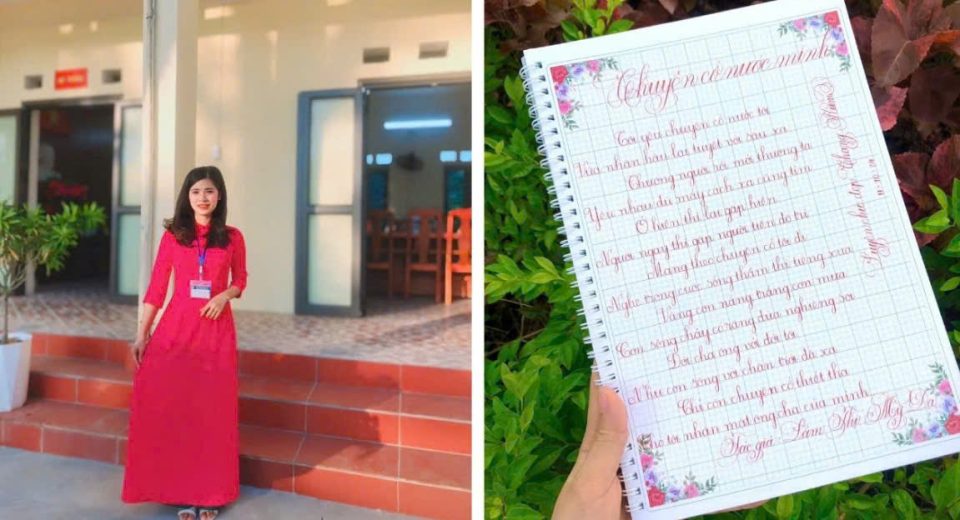 Chuyện cổ nước mình
Tôi yêu chuyện cổ nước tôi
Vừa nhân hậu lại tuyệt vời sâu xa
Thương người rồi mới thương ta
Yêu nhau dù mấy cách xa cũng tìm
Ở hiền thì lại gặp hiền
Người ngay thì gặp người tiên độ trì
Mang theo chuyện cổ tôi đi
Nghe trong cuộc sống thầm thì tiếng xưa
Vàng cơn nắng trắng cơn mưa
Con sông chảy có rặng dừa nghiêng soi
Đời cha ông với đời tôi
Như con sông với chân trời đã xa
Chỉ còn chuyện cổ thiết tha
Cho tôi nhận mặt ông cha của mình
Tác giả: Lâm Thị Mỹ Dạ
chữ đẹp